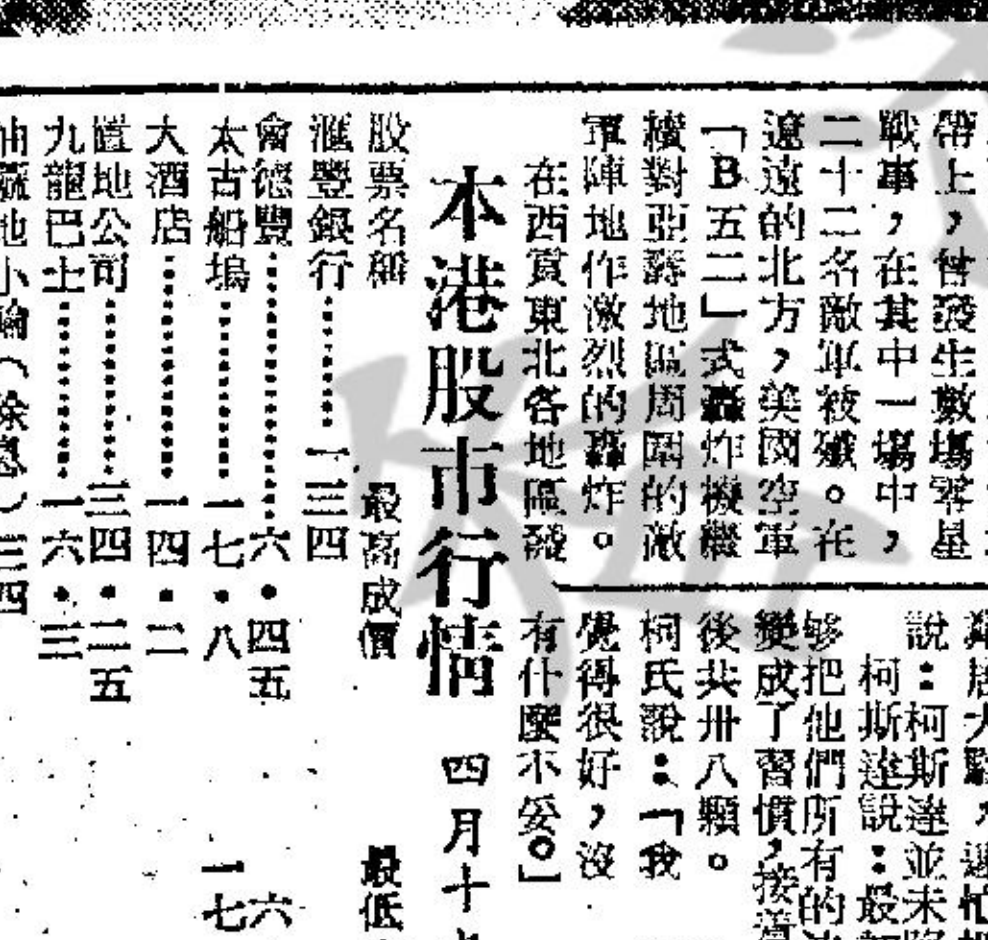 帶上，曾發生數場零星
戰事，在其中一場中，
二十二名敵軍被殲。在
遼遠的北方，美國空軍
「B五二」式轟炸機繼
續對亞壽地區周圍的敵
軍陣地作激烈的轟炸。
在西貢東北各地區發
說：柯斯達並未
柯斯達說：最
够把他們所有的
變成了習慣，接着
後共卅八顆。
柯氏說：「我
覺得很好，沒
有什麼不妥。」
本港股市行情 四月十
股票名稱 最高成價 最低
滙豐銀行………一三四
會德豐………六·四五 六
太古船塢………一七·八 一七
大酒店………一四·二
置地公司………三四·二五
九龍巴士………一六·三
油蔴地小輪（除息）三四